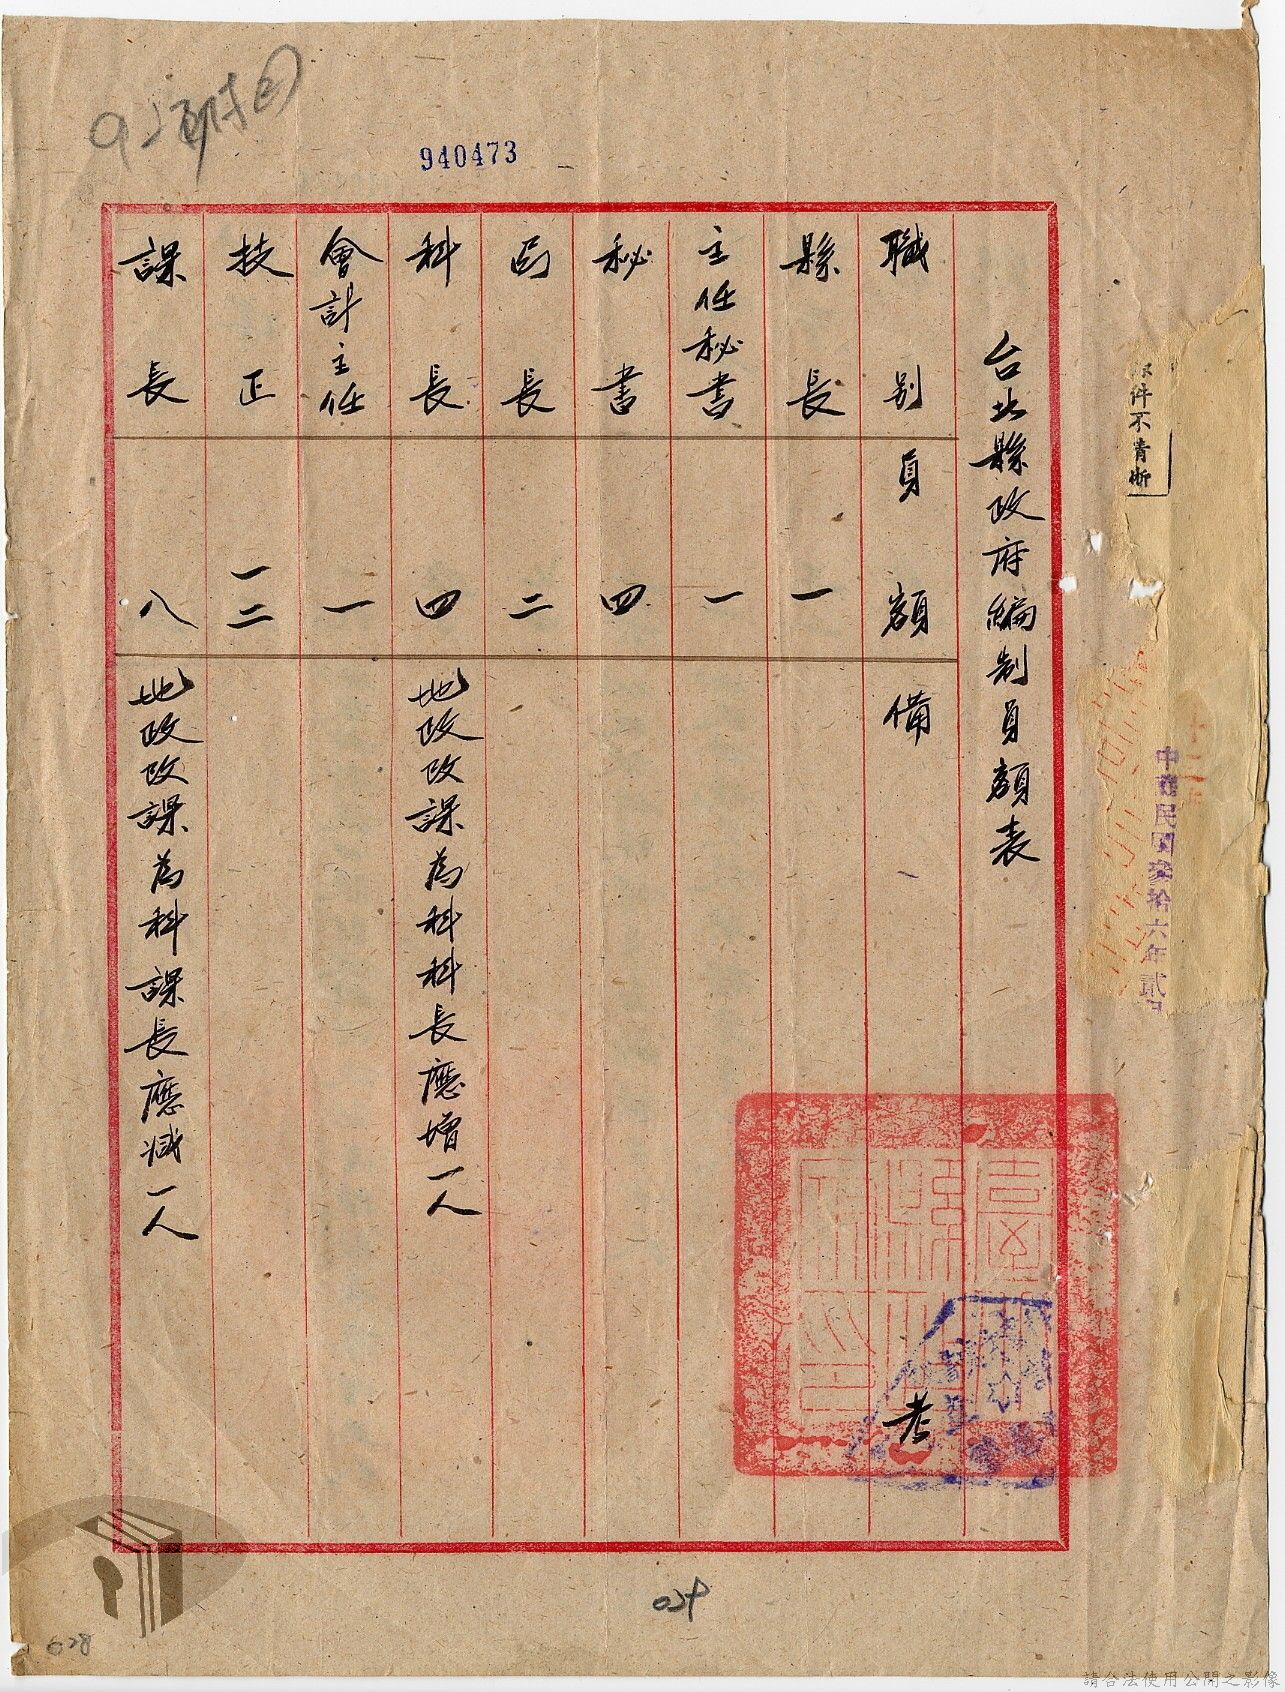 940473
台北縣政府編制員額表
職別 員額 備考
縣長 一
主任秘書 一
秘書 四
局長 二
科長 四 地政改課為科科長應增一人
會計主任 一
技正 一二
課長 八 地政改課為科課長應減一人
件不清晰
中華民國叁拾六年貳
029
628
請合法使用公開之影像